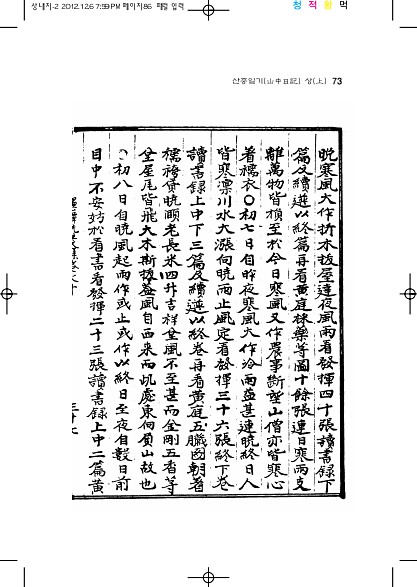 상내지-2 2012.12.6 7:59 PM 페이지86 패컬 입력
청 적 황 먹
산중일기(山中日記) 상(上) 73
晩寒風大作折木拔屋達夜風雨看發揮四十張讀書錄下
篇及續選以終篇再看黃庭
等圖十餘張連日寒雨支
離萬物皆損至於今日寒風又作農事斷望山僧亦皆寒心
着襦衣○初七日自昨夜寒風大作冷雨益甚連曉終日人
皆寒凜川水大漲向晩雨止風定看發揮三十六張終下卷
讀書錄上中下三篇及續選以終卷再看黃庭五臟圖朝着
襦袴
曉
老長米四升吉祥全風不至甚而金剛五杳等
全屋尾皆飛大木斯拔盖風自西來而
處東向負山故也
○初八日自曉風起雨作或止或作以終日至夜自數日前
目中不安妨於看書看發揮二十三張讀書錄上中二篇黃